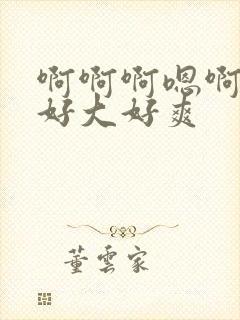 啊啊啊嗯啊
好大好爽
董云家